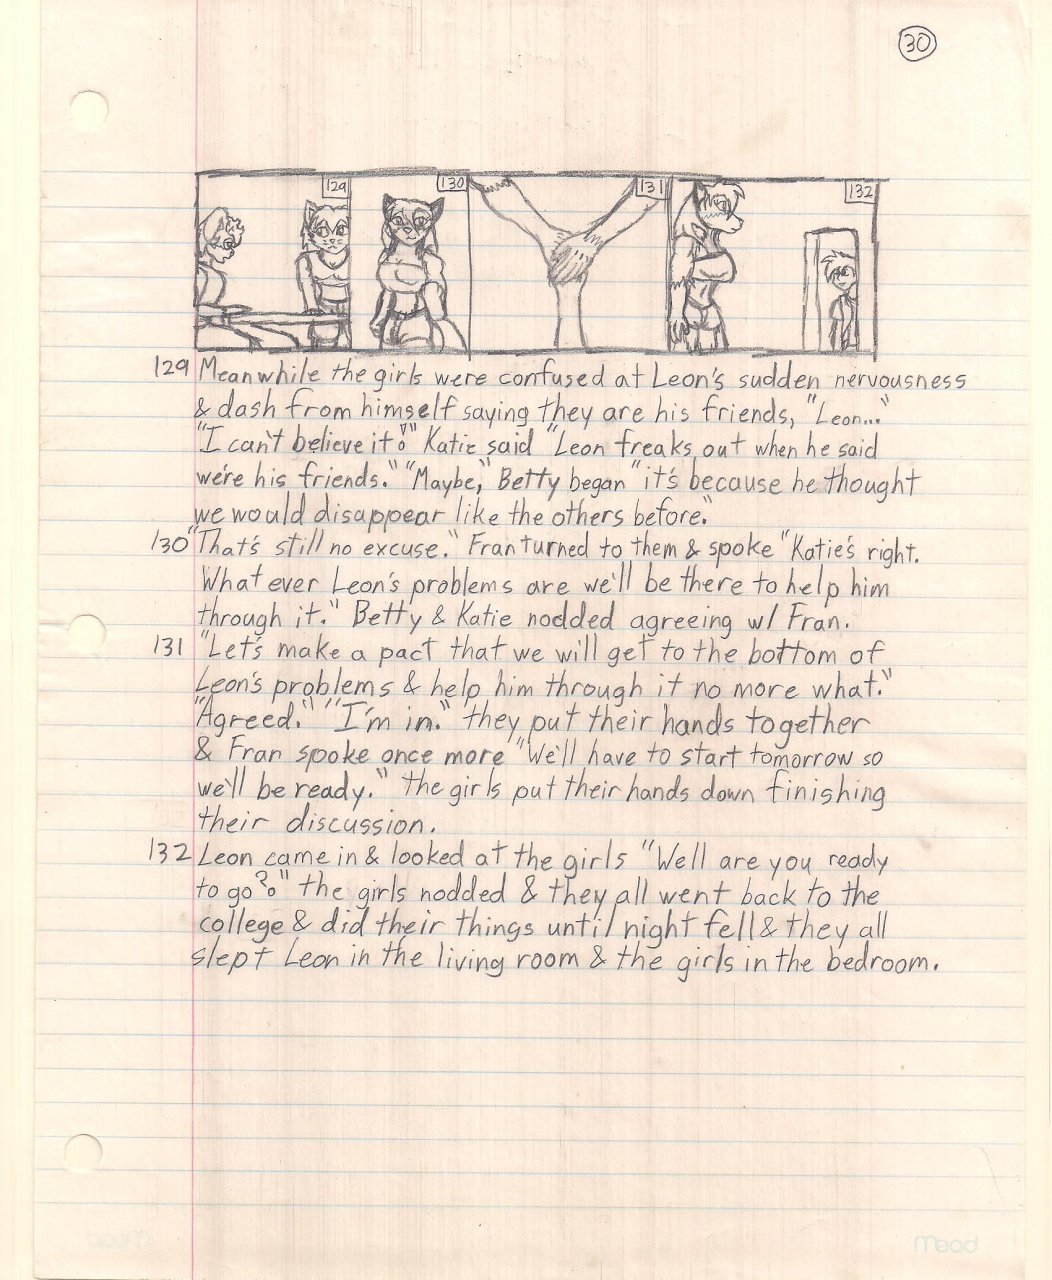 30
129
130
131
132
129 Meanwhile the girls were confused at Leon's sudden nervousness
& dash from himself saying they are his friends, "Leon..."
"I can't believe it!" Katie said "Leon freaks out when he said
we're his friends." "Maybe," Betty began "it's because he thought
we would disappear like the others before."
130 "That's still no excuse." Fran turned to them & spoke "Katie's right.
What ever Leon's problems are we'll be there to help him
through it." Betty & Katie nodded agreeing w/ Fran.
131 "Let's make a pact that we will get to the bottom of
Leon's problems & help him through it no more what."
"Agreed." "I'm in." they put their hands together
& Fran spoke once more "We'll have to start tomorrow so
we'll be ready." the girls put their hands down finishing
their discussion.
132 Leon came in & looked at the girls "Well are you ready
to go?" the girls nodded & they all went back to the
college & did their things until night fell & they all
slept Leon in the living room & the girls in the bedroom.
Mead